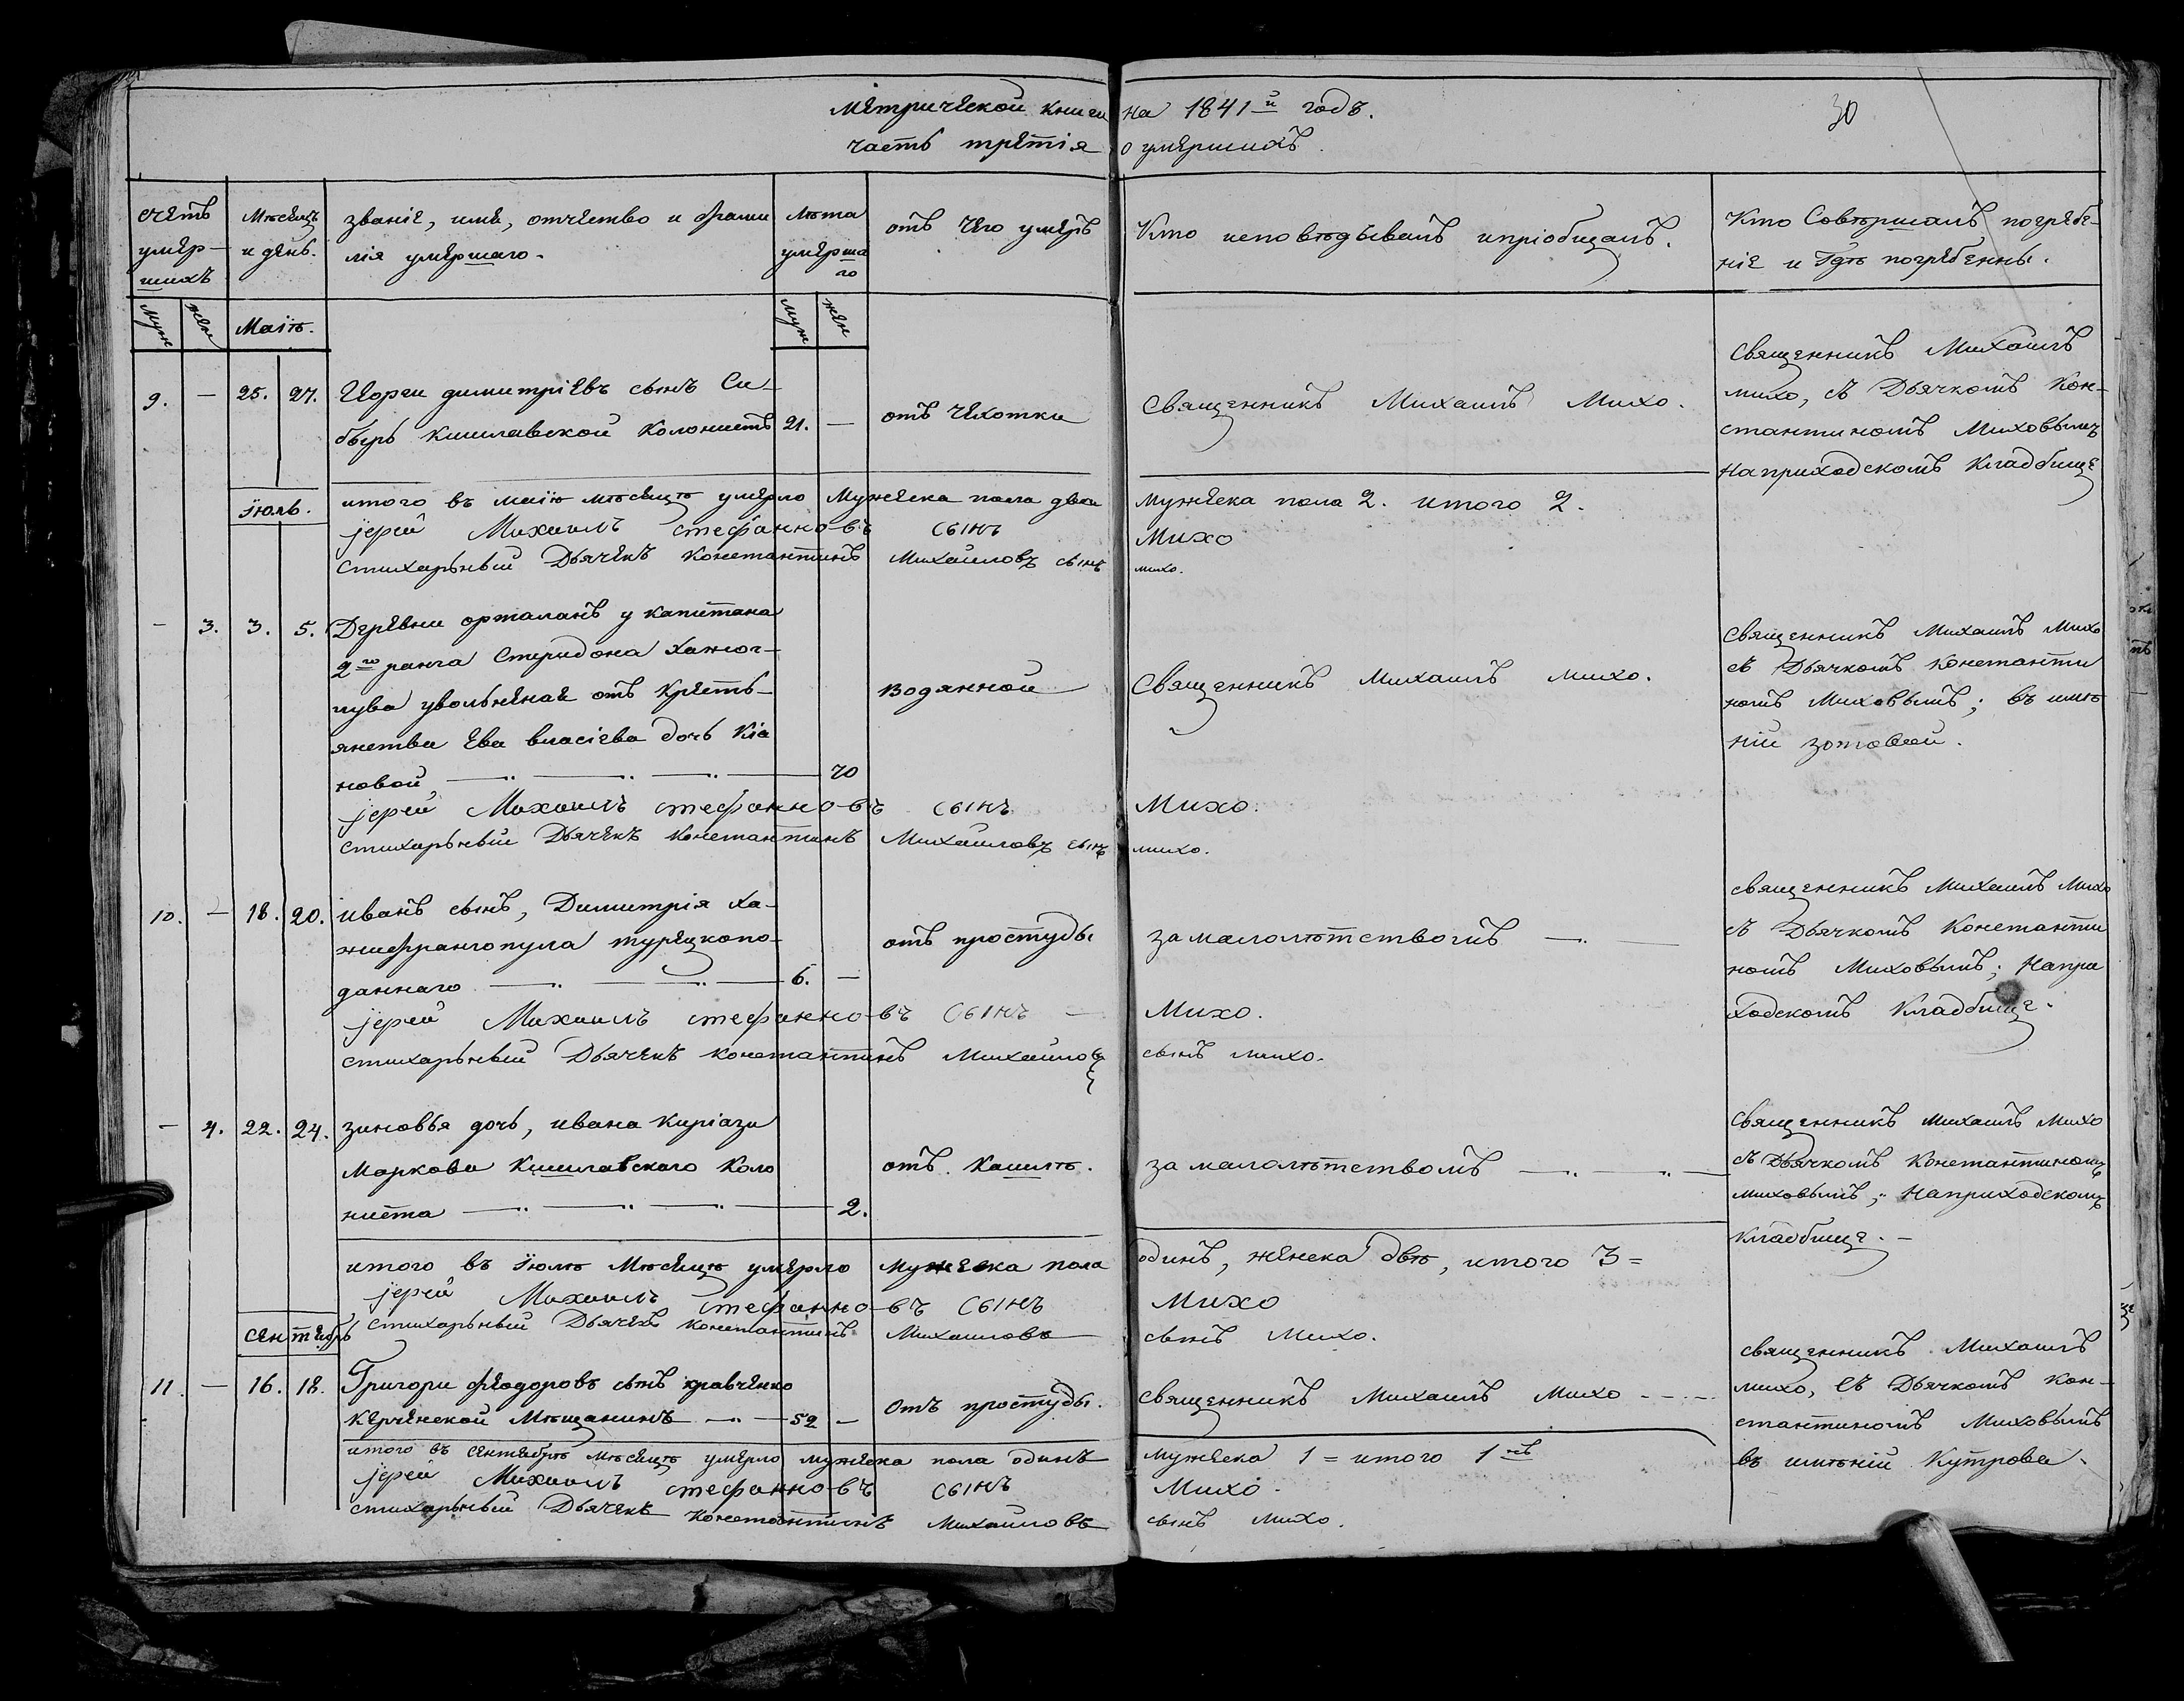 Метрической книги на 1841й годъ.
30
часть третія о умершихъ.
счетъ умер-шихъ
Мѣсецъ и день.
званіе, име, отчество и фами
лія умершаго.
Лѣта умерша го
отъ чего умеръ
Кто исповѣдывалъ и пріобщалъ.
Кто Совѣршалъ погребе-
ніе и Гдѣ погребенны.
муж
жен
Маій.
муж
жен
9. — 25. 27. Георги димитріевъ сынъ Си-
бырь кишлавской колонистъ 21. —
отъ чехотки
Священникъ Михаилъ Михо.
Священникъ Михаилъ
михо, съ Дьячкомъ Кон-
стантиномъ Миховымъ
на приходскомъ кладбище
итого въ маію мѣсецѣ умерло Мужеска пола два мужеска пола 2. итого 2.
іерей Михаилъ стефанно-въ сынъ Михо
стихарьный Дьячекъ Константинъ Михаиловъ сынъ михо.
Іюль.
— 3. 3. 5. Деревни орталанъ у капитана
2го ранга Спиридона
увольненае отъ Кресть-
янства Ева власіева дочь Кіа
новой 70
водянной
Священникъ Михаилъ михо.
Священникъ Михаилъ Михо
съ Дьячкомъ Константи
номъ Миховымъ; въ имѣ
ніи зотовой.
іерей Михаилъ стефанно-въ сынъ Михо.
стихарьный Дьячекъ Константинъ Михаиловъ сынъ михо.
10. — 18. 20. иванъ сынъ, Димитрія ха-
жифрангопула турецкопо-
даннаго 6. —
отъ простуды
за малолѣтствомъ
священникъ Михаилъ Михо
съ Дьячкомъ Константи
номъ Миховымъ; На при
ходскомъ Кладбище.
іерей Михаилъ стефанно-въ сынъ Михо.
стихарьный Дьячекъ константинъ Михаиловъ сынъ михо.
— 4. 22. 24. зиновья дочь, ивана киріази
Маркова Кишлавскаго коло
ниста 2.
отъ кашлѣ.
за малолѣтствомъ
Священникъ михаилъ михо
съ Дьячкомъ Константиномъ
миховымъ; На приходскомъ
кладбище.
итого въ іюлѣ мѣсецѣ умерло мужеска пола одинъ, женска двѣ, итого 3=
іерей Михаилъ стефанно-въ сынъ Михо
стихарьный Дьячекъ константинъ Михаиловъ сынъ Михо.
сентябрь
11. — 16. 18. Григори феодоровъ сынъ кравченко
керченской Мѣщанинъ 52 —
отъ простуды.
священникъ Михаилъ Михо
священникъ Михаилъ
михо, съ Дьячкомъ Кон-
стантиномъ Миховымъ
въ имѣніи Кутрова.
итого въ сентебрѣ мѣсецѣ умерло мужеска пола одинъ мужеска 1 = итого 1нъ
іерей Михаилъ стефанно-въ сынъ Михо.
стихарьный Дьячекъ Константинъ Михаиловъ сынъ михо.